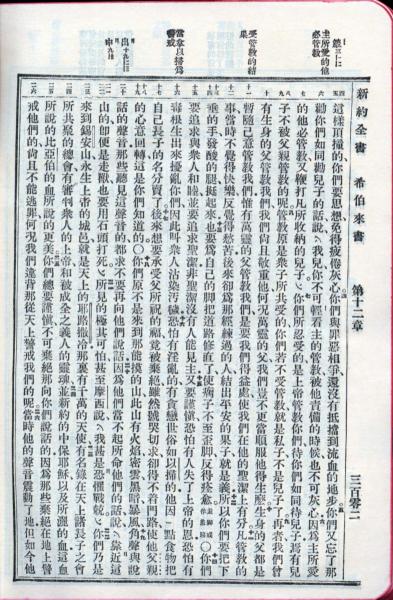 新約全書 希伯來書 第十二章 三百零二
主所愛的他必管教
受管教的結果
當拿以掃為警戒
這樣頂撞的、你們要思想、免得疲倦灰心你們與罪惡相爭、還沒有抵擋到流血的地步你們又忘了那
勸你們如同勸兒子的話說、我兒你不可輕看主的管教被他責備的時候也不可灰心因為主所愛
的他必管教又鞭打凡所收納的兒子你們所忍受的是上帝管教你們待你們如同待兒子焉有兒
子不被父親管教的呢管教原是衆子所共受的你們若不受管教就是私子不是兒子了再者我們曾
有生身的父管教我們我們尚且敬重他何況萬靈的父我們豈不更當順服他得生麼生身的父都是
暫隨己意管教我們惟有萬靈的父管教我們是要我們得益處使我們在他的聖潔上有分凡管教的
事當時不覺得快樂反覺得愁苦後來卻為那經練過的人結出平安的果子就是義所以你們要把下
垂的手發酸的腿挺起來也要為自己的腳把道路修直了使瘸子不至歪腳反得痊愈○你們
要追求與衆人和睦並要追求聖潔非聖潔沒有人能見主又要謹慎恐怕有人失了上帝的恩恐怕有
毒根生出來擾亂你們因此叫衆人沾染污穢恐怕有淫亂的有貪戀世俗如以掃的他因一點食物把
自己長子的名分賣了後來想要承受父所祝的福竟被棄絕雖然號哭切求卻得不着門路使他父親
的心意回轉這是你們知道的○你們原不是來到那能摸的山此山有火焰密雲黑暗暴風角聲與說
話的聲音那些聽見這聲音的都求不要再向他們說話因為他們當不起所命他們的話說靠近這
山的即便是走獸也要用石頭打死所見的極其可怕甚至摩西說我甚是恐懼戰兢你們乃是
來到錫安山永生上帝的城邑就是天上的耶路撒冷那裏有千萬的天使有名錄在天上諸長子之會
所共聚的總會有審判衆人的上帝和被成全之義人的靈魂並新約的中保耶穌以及所灑的血這血
所說的比亞伯的血所說的更美你們總要謹慎不可棄絕那向你們說話的因為那些棄絕在地上警
戒他們的尚且不能逃罪何況我們違背那從天上警戒我們的呢當時他的聲音震動了地但如今他